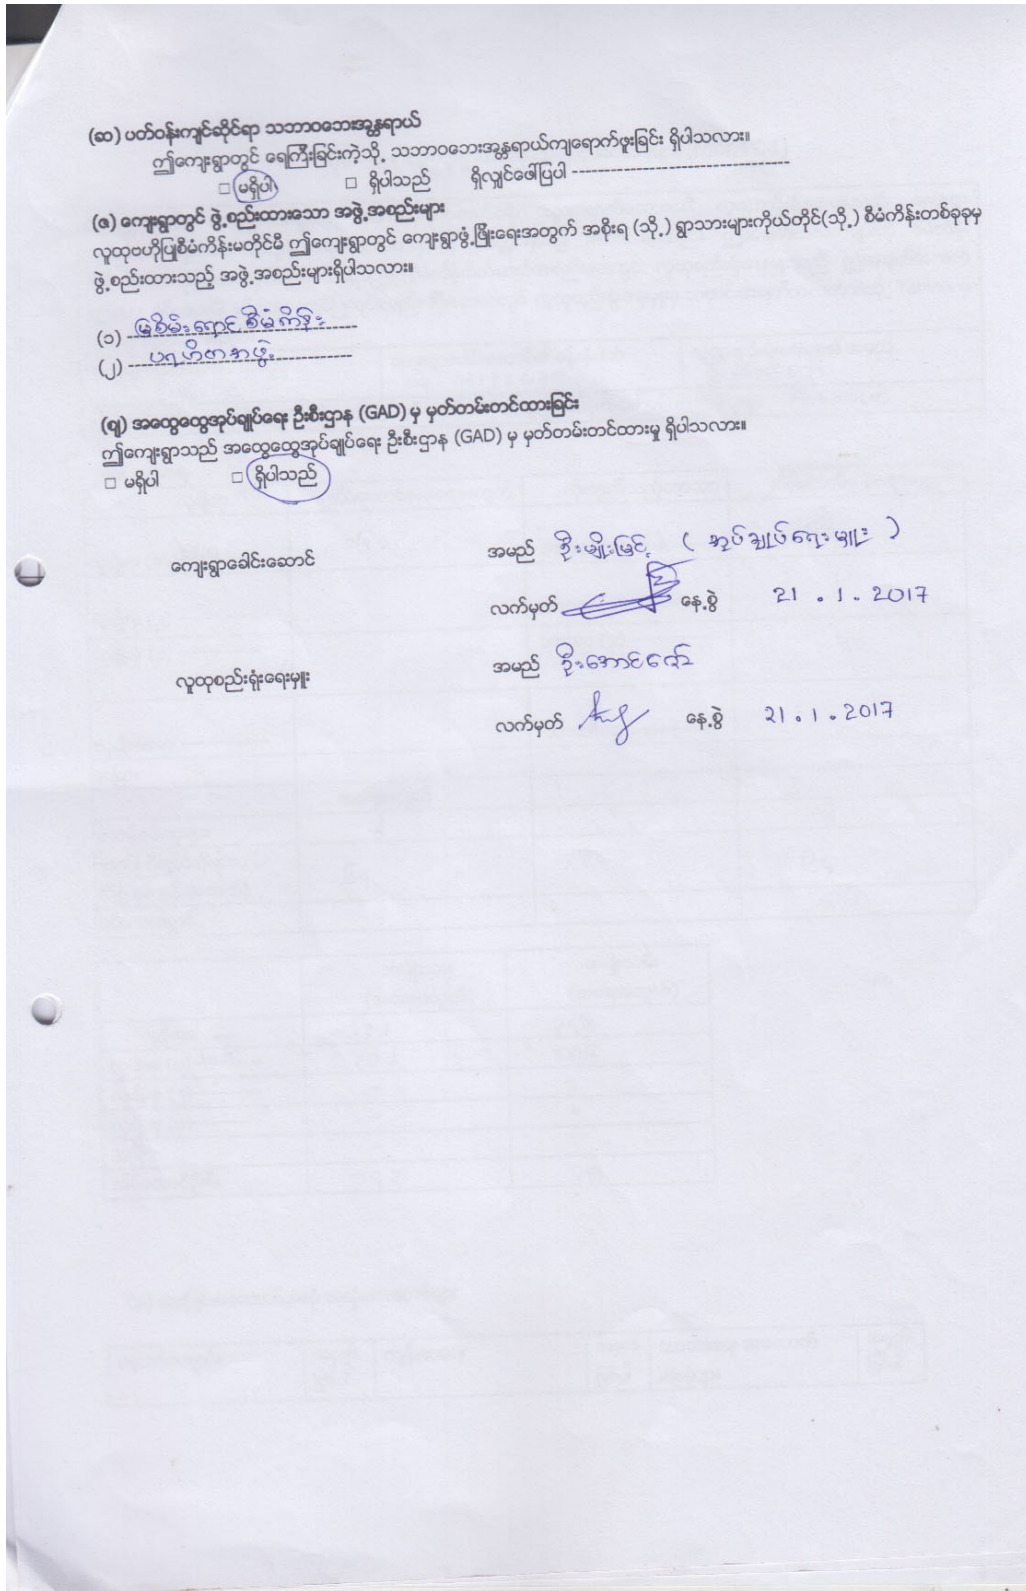 (ဆ) ပတ်ဝန်းကျင်ဆိုင်ရာ သဘာဝဘေးအန္တရာယ်
ဤကျေးရွာတွင် ရေကြီးခြင်းကဲ့သို့ သဘာဝဘေးအန္တရာယ်ကျရောက်ဖူးခြင်း ရှိပါသလား။
□ မရှိပါ □ ရှိပါသည် ရှိလျှင်ဖေါ်ပြပါ ----------------------------------
(ဇ) ကျေးရွာတွင် ဖွဲ့စည်းထားသော အဖွဲ့အစည်းများ
လူထုဗဟိုပြုစီမံကိန်းမတိုင်မီ ဤကျေးရွာတွင် ကျေးရွာဖွံ့ဖြိုးရေးအတွက် အစိုးရ (သို့) ရွာသားများကိုယ်တိုင်(သို့) စီမံကိန်းတစ်ခုခုမှ
ဖွဲ့စည်းထားသည့် အဖွဲ့အစည်းများရှိပါသလား။
(၁) မြစိမ်းရောင်စီမံကိန်း
(၂) ပရဟိတအဖွဲ့
(ဈ) အထွေထွေအုပ်ချုပ်ရေး ဦးစီးဌာန (GAD) မှ မှတ်တမ်းတင်ထားခြင်း
ဤကျေးရွာသည် အထွေထွေအုပ်ချုပ်ရေး ဦးစီးဌာန (GAD) မှ မှတ်တမ်းတင်ထားမှု ရှိပါသလား။
□ မရှိပါ □ ရှိပါသည်
ကျေးရွာခေါင်းဆောင် အမည် ဦးမျိုးမြင့် ( အုပ်ချုပ်ရေးမှူး )
လက်မှတ် နေ့စွဲ 21 . 1 . 2017
လူထုစည်းရုံးရေးမှူး အမည် ဦးအောင်ဇော်
လက်မှတ် နေ့စွဲ 21 . 1 . 2017